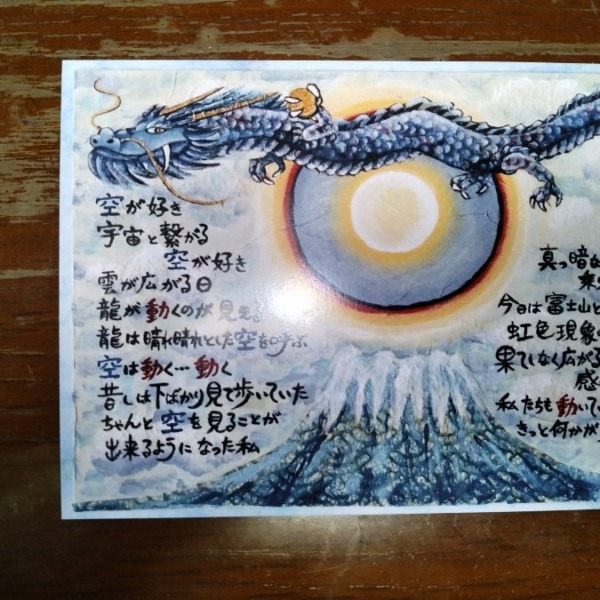 空が好き
宇宙と繋がる
空が好き
雲が広がる日
龍が動くのが見える
龍は晴れ晴れとした空を呼ぶ
空は動く…動く
昔しは下ばかり見て歩いていた
ちゃんと空を見ることが
出来るようになった私
真っ暗
今日は富士山と
虹色現象
果てしなく広がる
感
私たちも動いて
きっと何かが